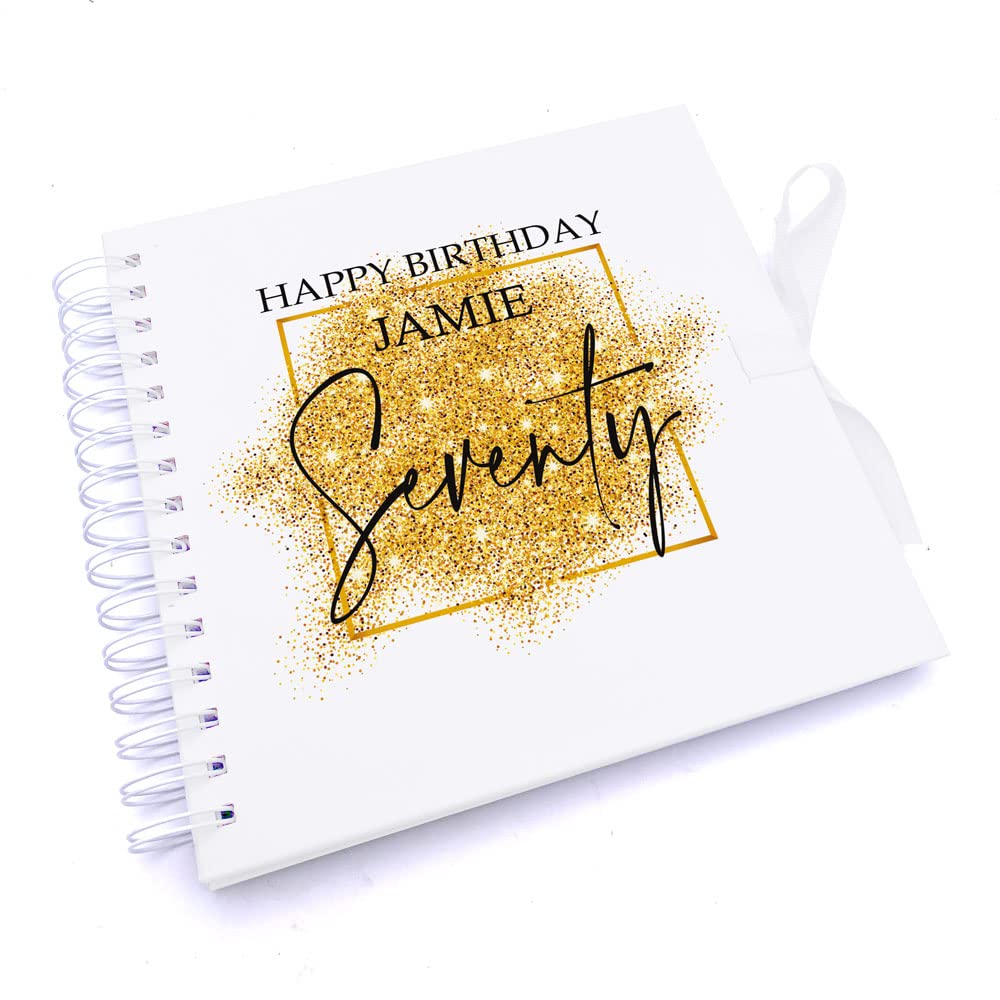 HAPPY BIRTHDAY
JAMIE
Seventy